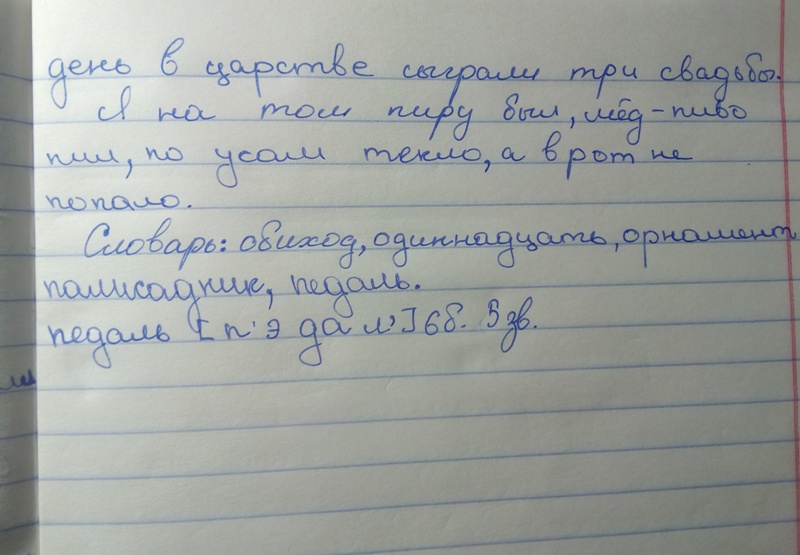 день в царстве сыграли три свадьбы.
Я на том пиру был, мёд-пиво
пил, по усам текло, а в рот не
попало.
Словарь: обиход, одиннадцать, орнамент
палисадник, педаль.
педаль [п'э да л'] 6 б. 5 зв.